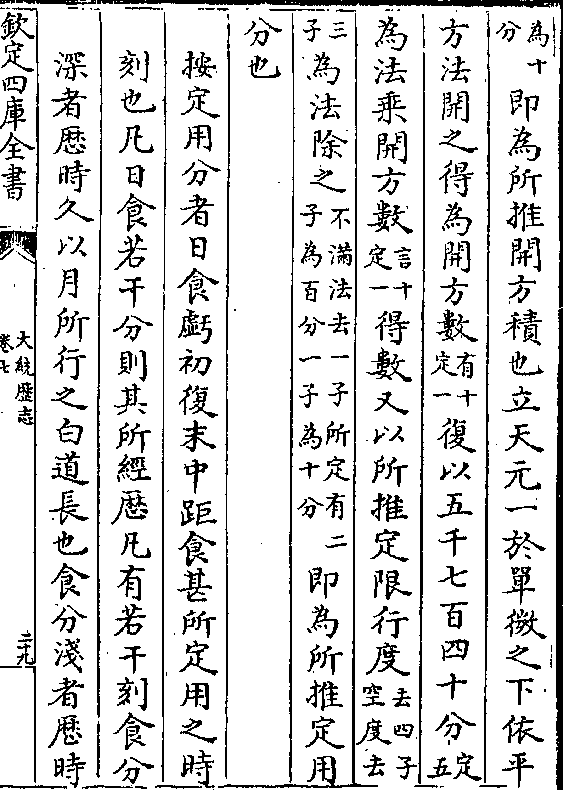 為十分即為所推開方積也立天元一於單微之下依平
方法開之得為開方數有十定一復以五千七百四十分定五
為法乘開方數言十定一得數又以所推定限行度去四子空度去
三子為法除之不滿法去一子所定有二子為百分一子為十分即為所推定用
分也
按定用分者日食虧初復末中距食甚所定用之時
刻也凡日食若干分則其所經厯凡有若干刻食分
深者厯時久以月所行之白道長也食分淺者厯時
欽定四庫全書
大統厯志
卷七
二十九